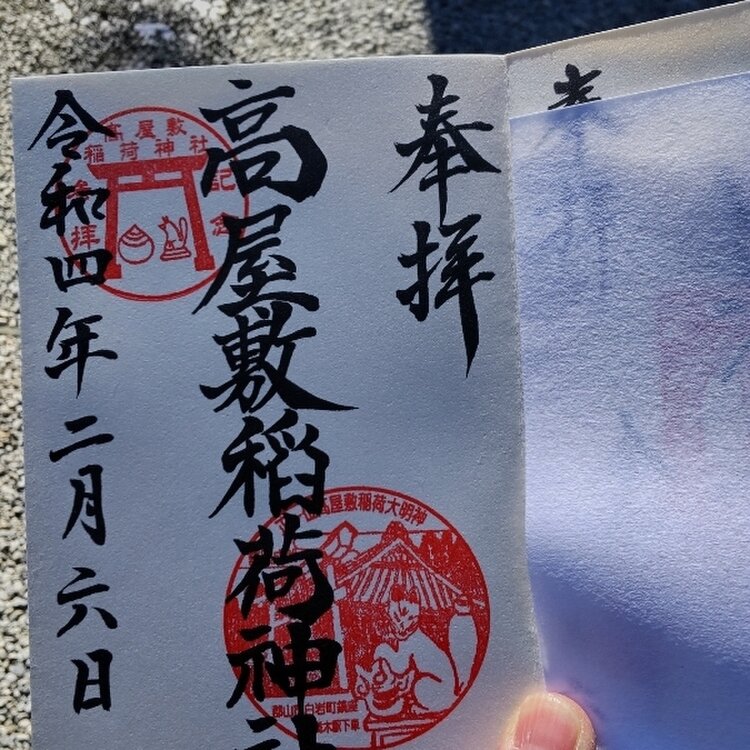 奉拝
高屋敷稲荷神社
令和四年二月六日
高屋敷
稲荷神社
参拝
記念
高屋敷稲荷大明神
郡山市白岩町鎮座
木駅下車